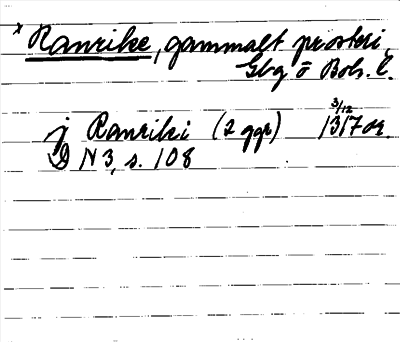 * Ranrike, gammalt prosteri,
Gbg o Boh. l.
3/12
j Ranriki (2 ggr) 1317 or.
D N 3, s. 108